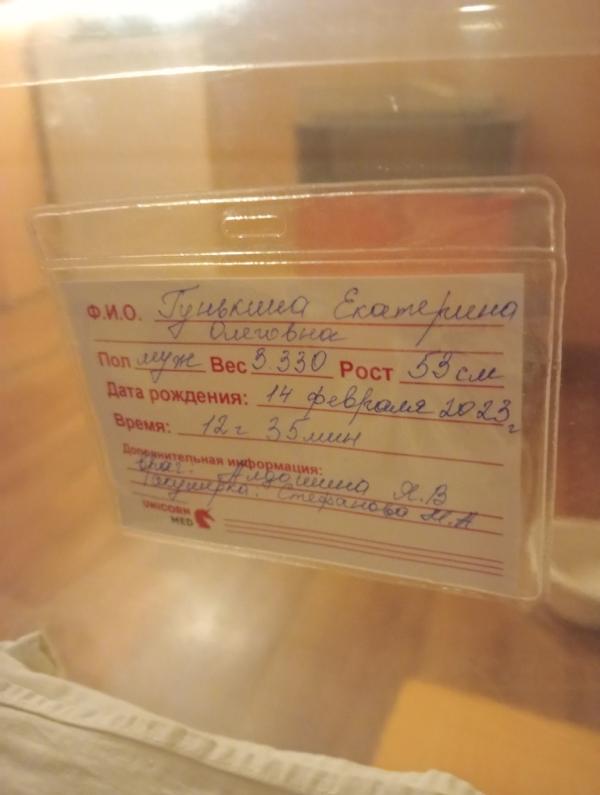 Ф.И.О. Гунькина Екатерина
Олеговна
Пол муж Вес 3.330 Рост 53 см
Дата рождения: 14 февраля 2023 г
Время: 12 г 35 мин
Дополнительная информация:
врач: Алдошина Я.В
Акушерка. Стефанова Н.А
UNICORN
MED